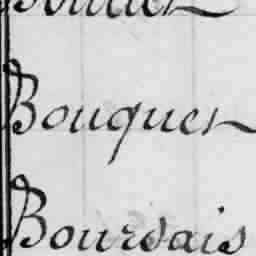 Bouquet
Boursais